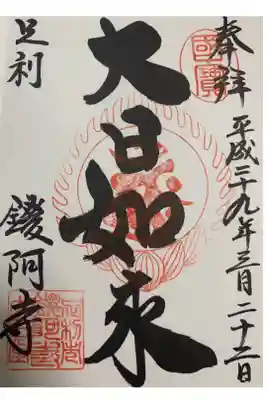 奉拝
平成二十九年三月二十二日
國寶
大日如来
足利
鑁阿寺